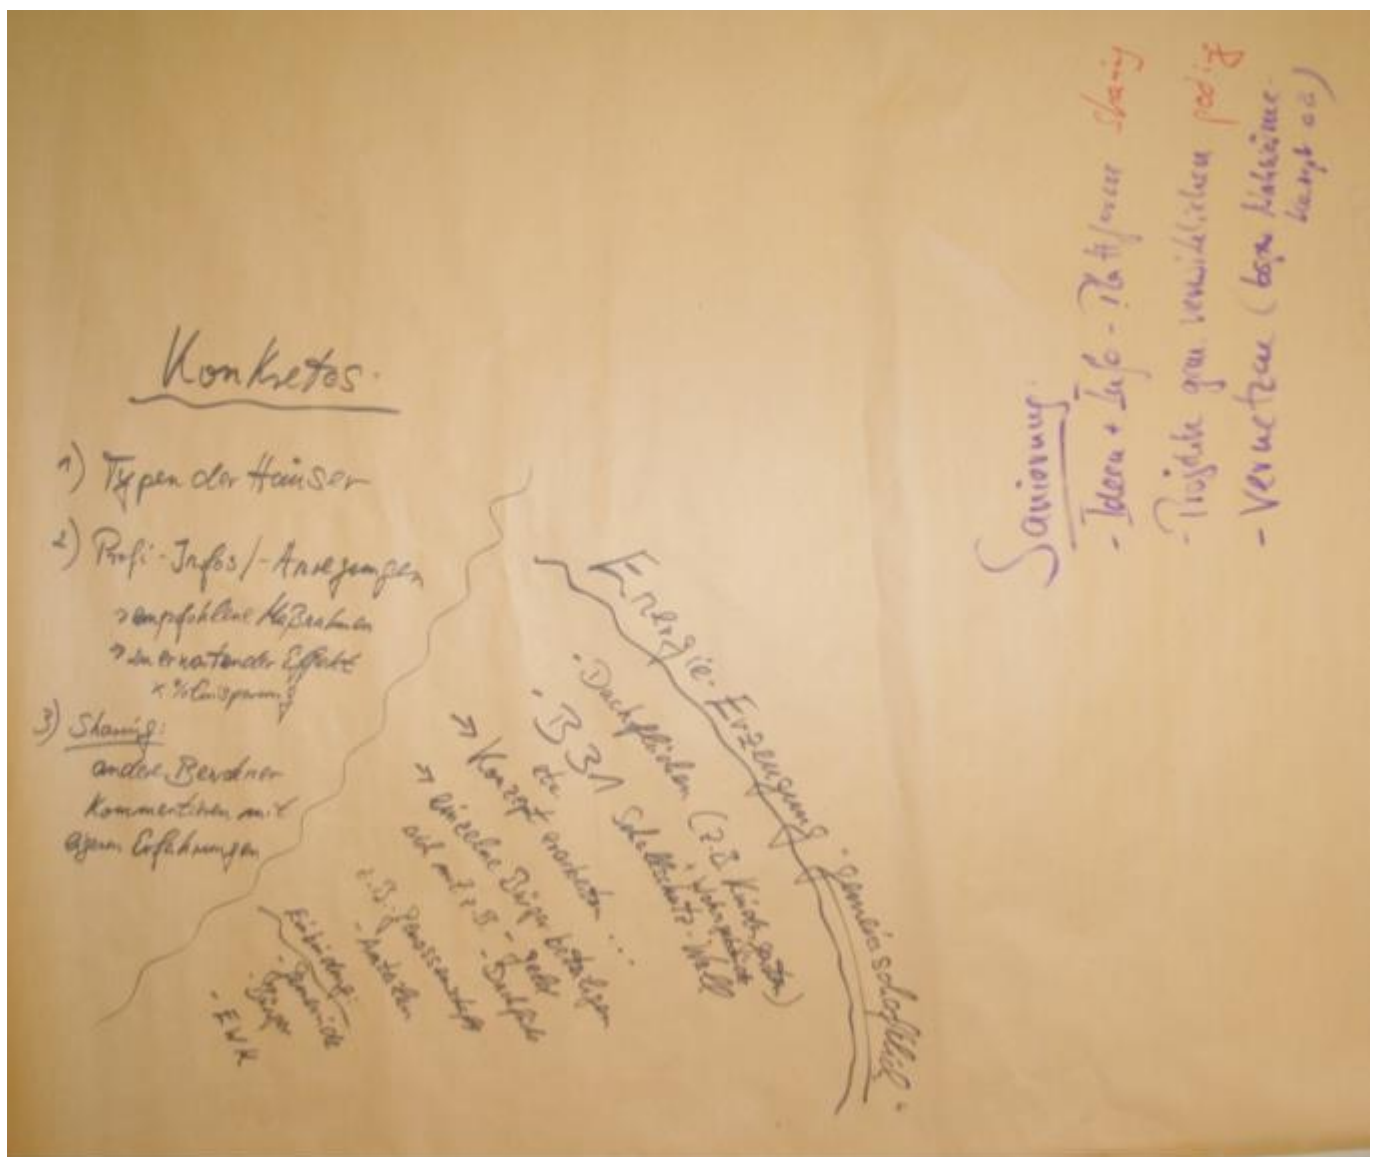 Konkretes:
1) Typen der Häuser
2) Profi-Infos/-Anregungen
→ empfohlene Maßnahmen
→ zu erwartender Effekt
x % Einsparung
3) Sharing:
andere Bewohner
kommentieren mit
eigenen Erfahrungen
Energie-Erzeugung "gemeinschaftlich"
- Dachflächen (z.B. Kindergarten)
- B31 Schallschutz-Wall
→ Konzept erarbeiten ...
→ einzelne Bürger beteiligen
sich mit z.B. - Geld
- Dachfläche
z.B. Genossenschaft
- Anteilen
Einbindung:
- Gemeinde
- Bürger
- EWK
Sanierung:
- Ideen + Info-Plattform sharing
- Projekte gem. verwirklichen pooling
- Vernetzen (bspw. Nahwärme-
konzept o.ä.)